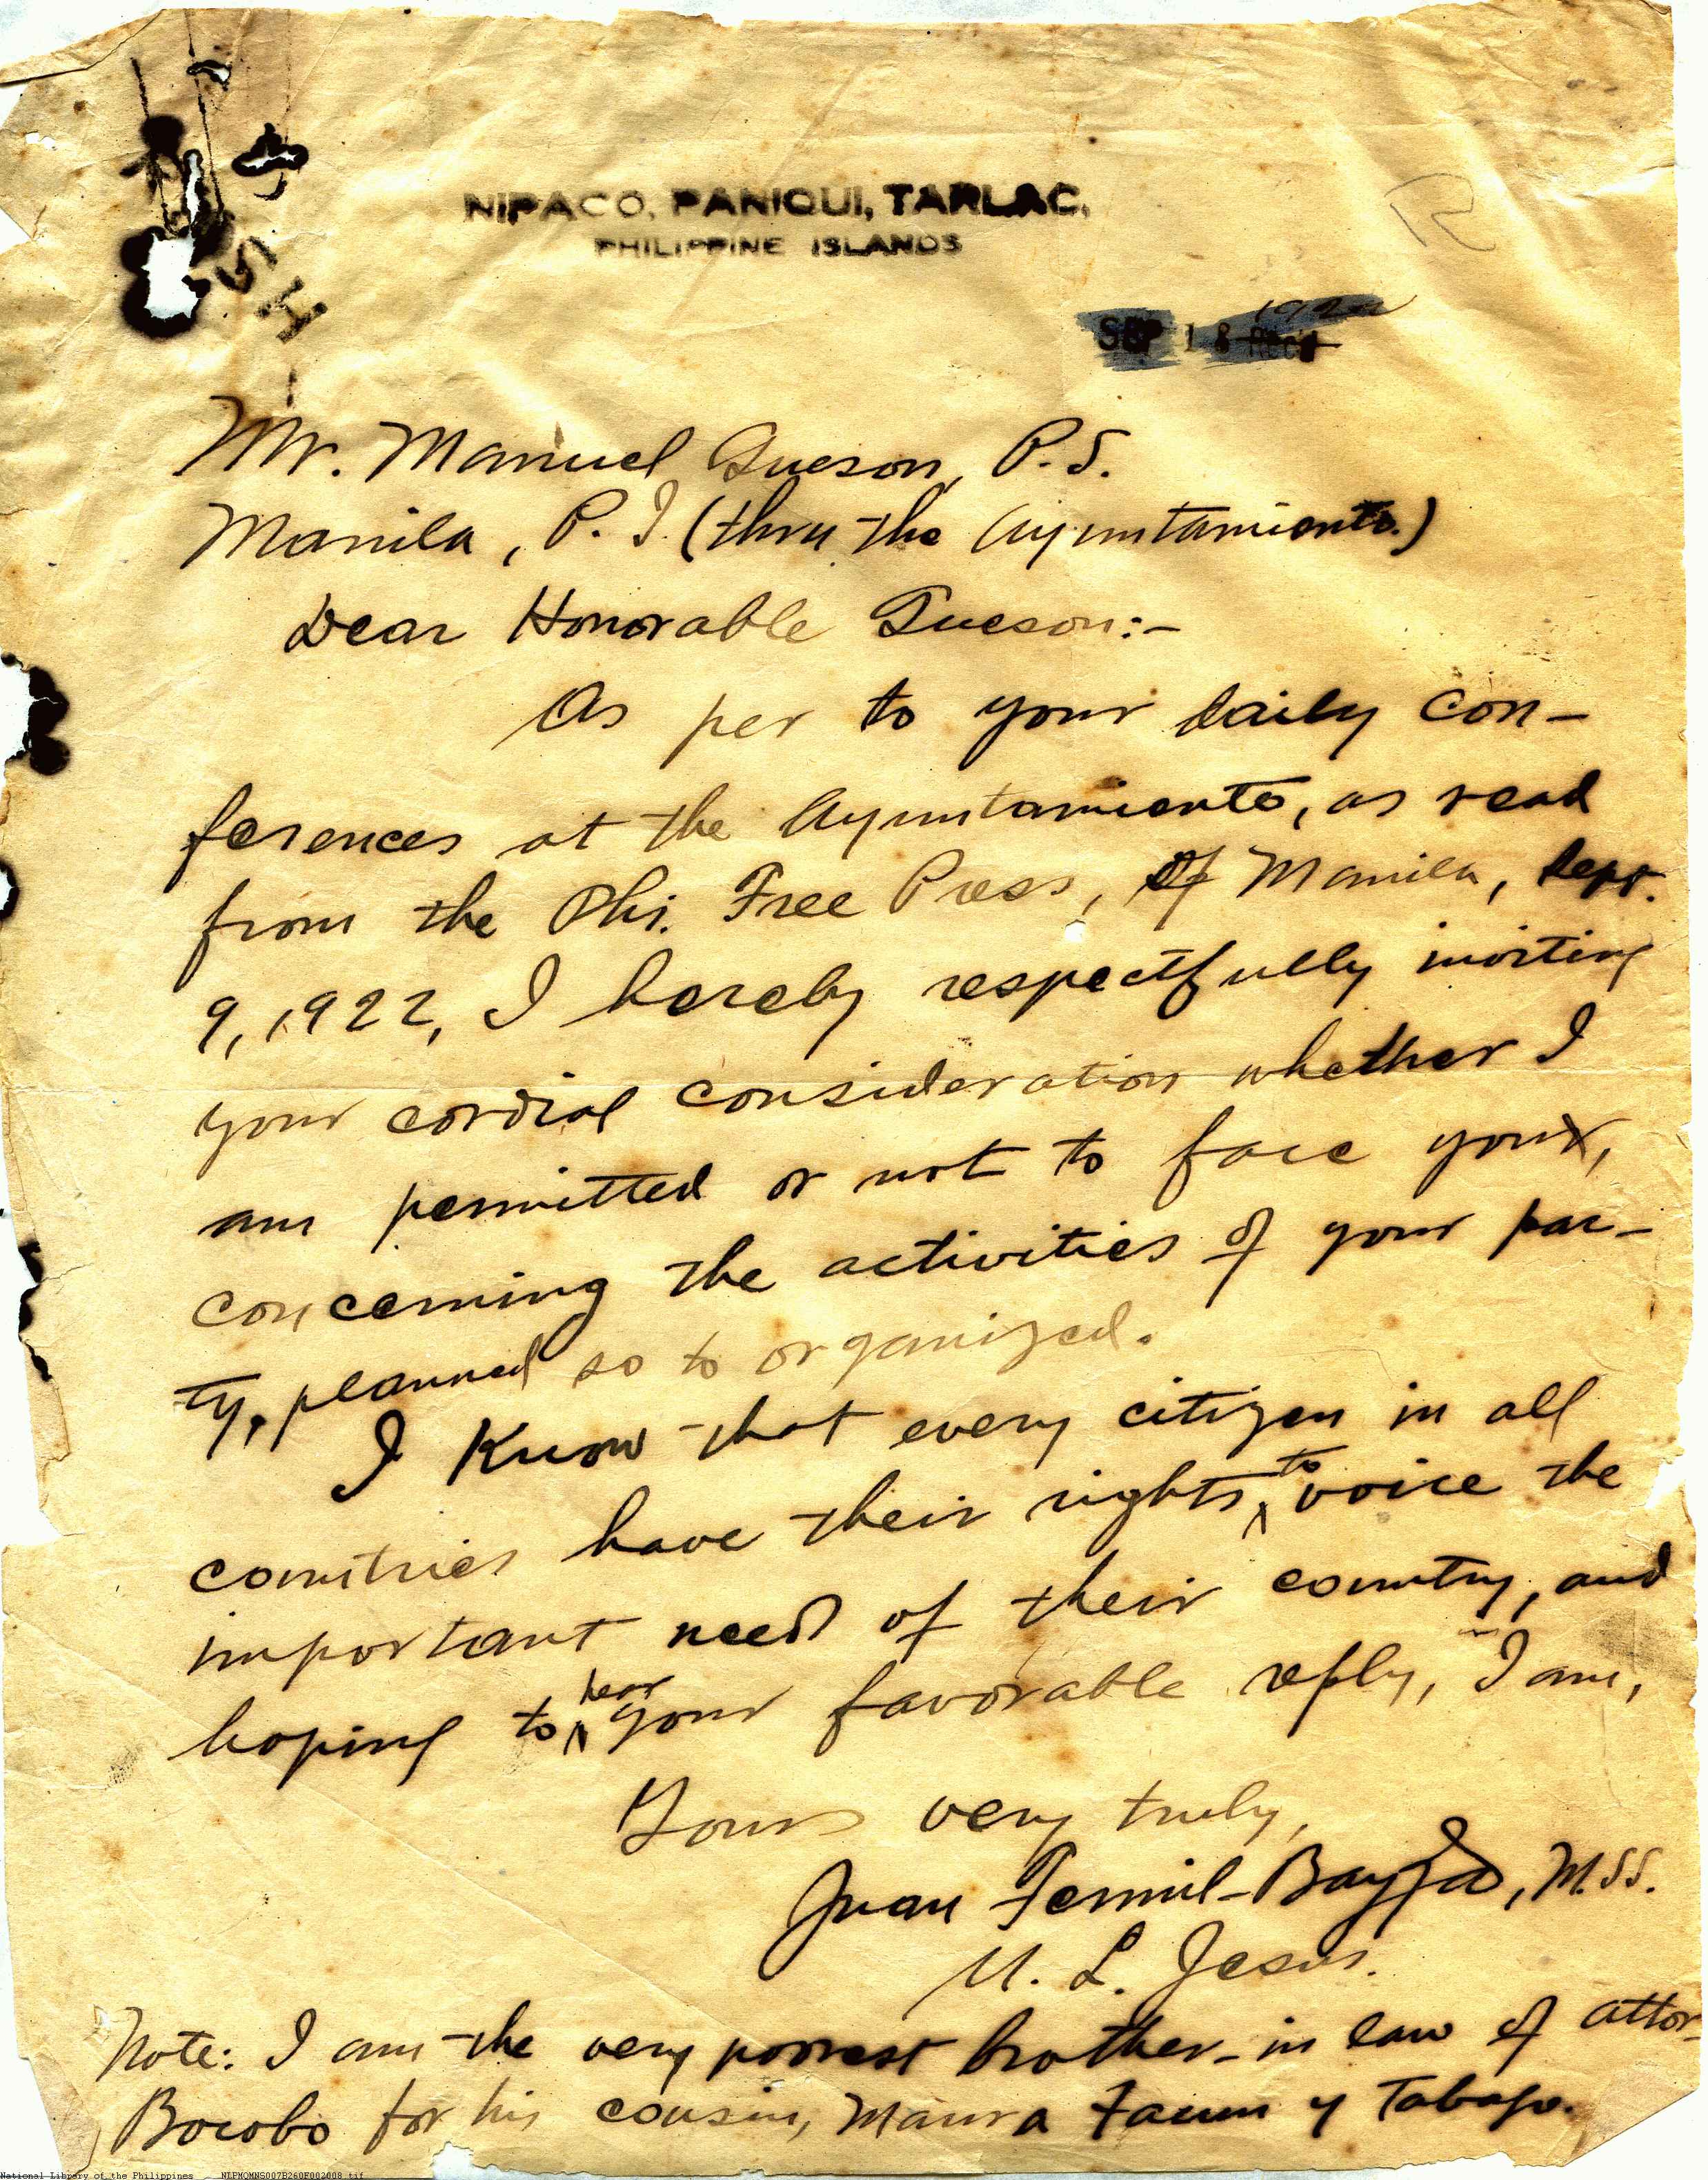 NIPACO, PANIQUI, TARLAC,
PHILIPPINE ISLANDS
R
1922
SEP 18 Rec'd
Mr. Manuel Queson, P.S.
Manila, P. I. (thru the Ayuntamiento.)
Dear Honorable Queson:-
As per to your daily con-
ferences at the Ayuntamiento, as read
from the Phi. Free Press, of Manila, Sept.
9, 1922, I hereby respectfully inviting
your cordial consideration whether I
am permitted or not to face you,
concerning the activities of your par-
ty, planned so to organized.
I Know that every citizen in all
countries have their rights to voice the
important need of their country, and
hoping to hear your favorable reply, I am,
Yours very truly,
Juan Fermil-, M.SS.
U. L. Jesus.
Note: I am the very poorest brother-in law of attor-
Bocobo for his cousin, Maura y Tabago.
National Library of the Philippines NLPMQMNS007B260F002008.tif